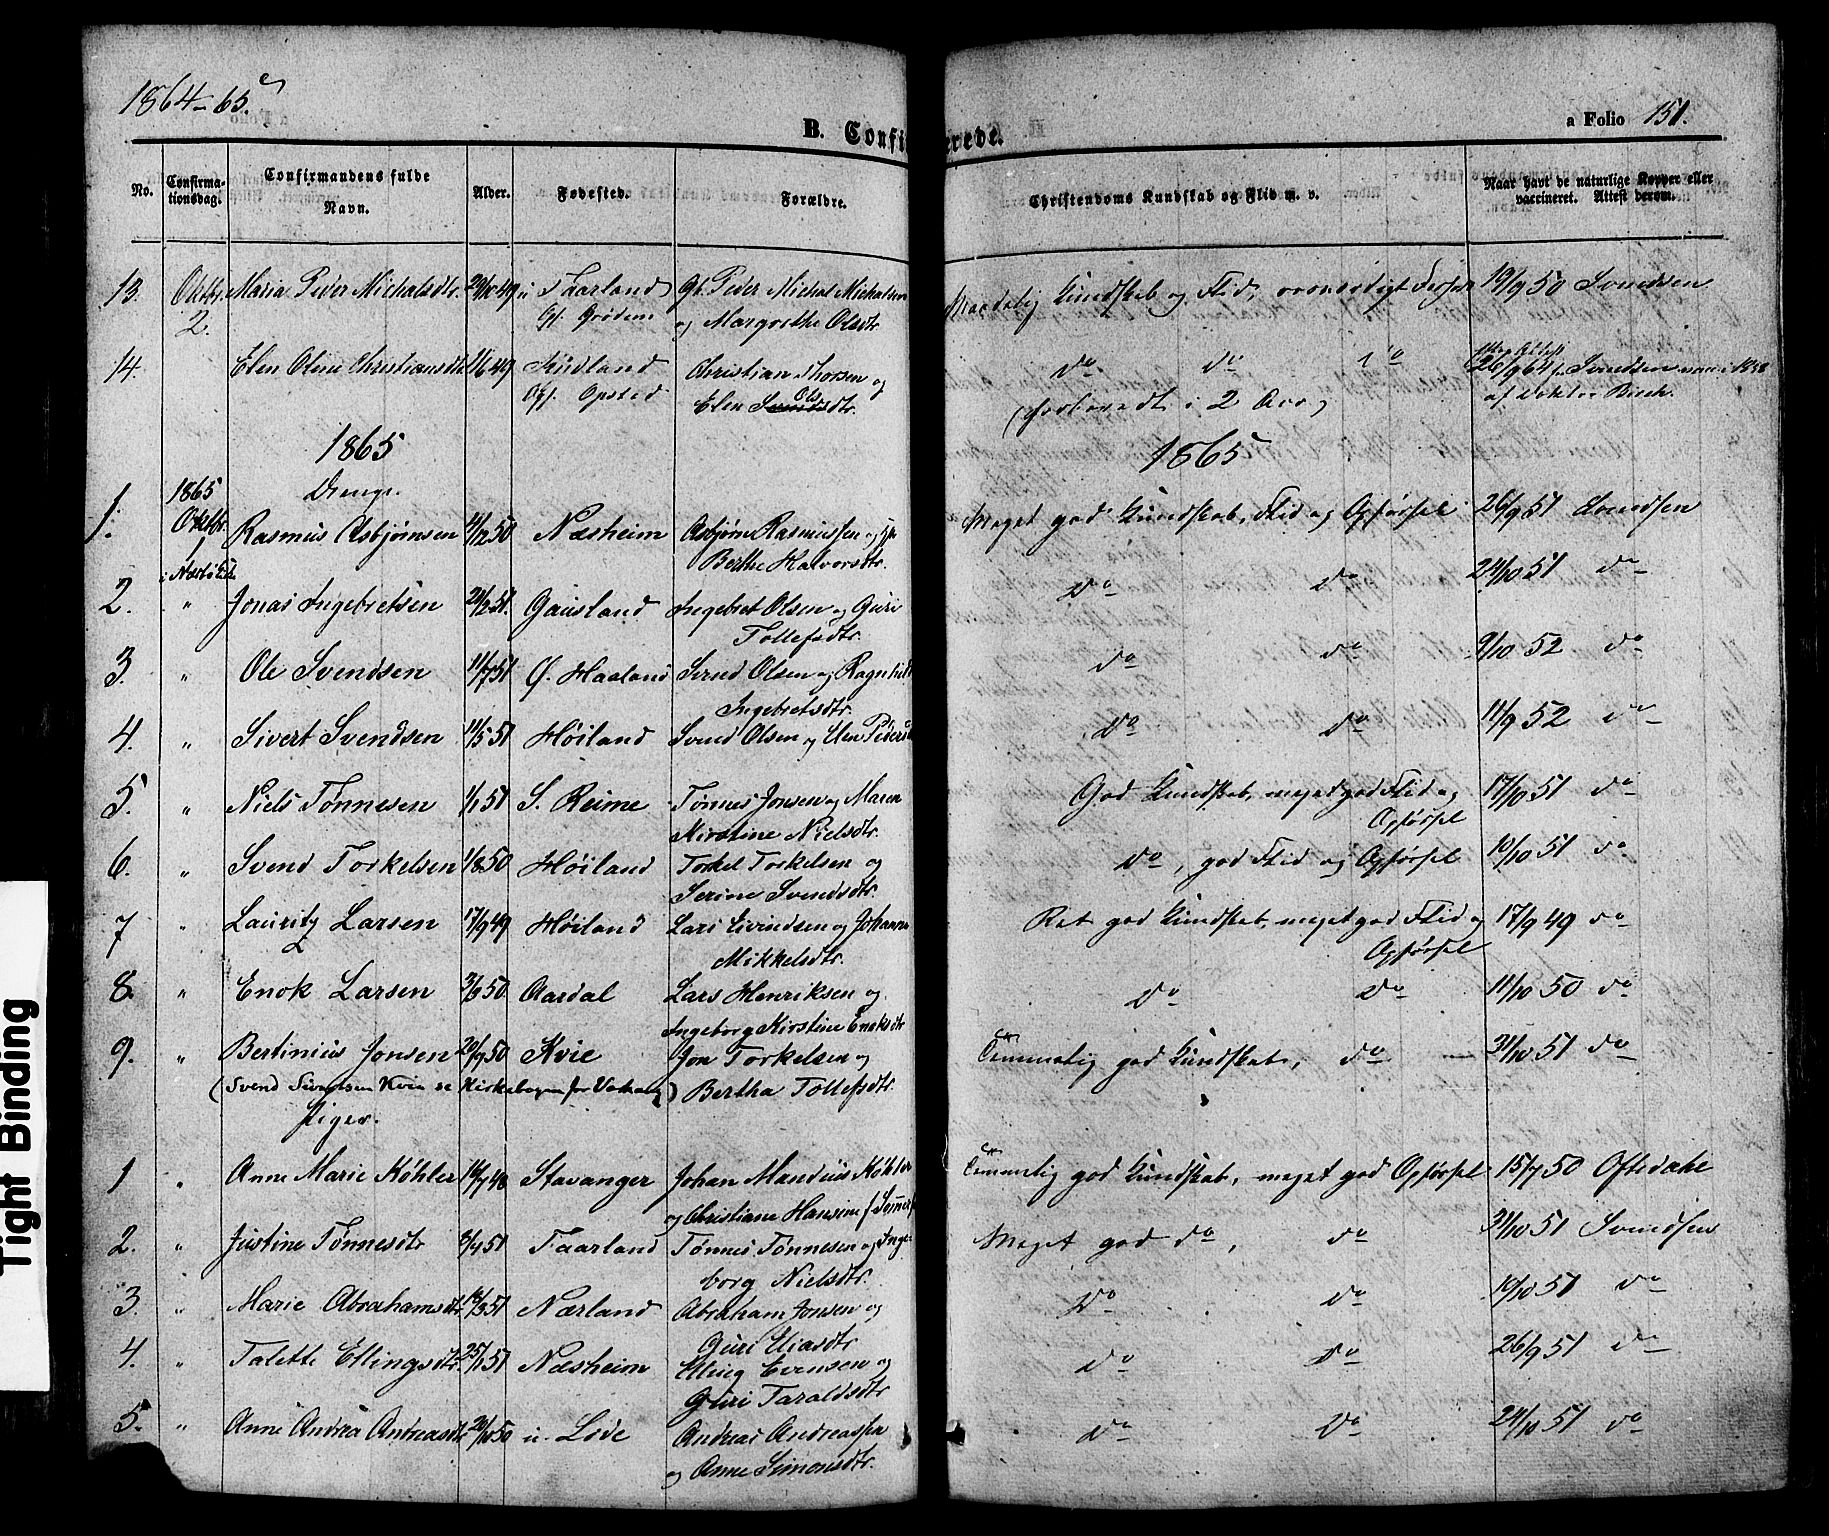 1864-65.
B. Confirmerede.
a Folio 151.
No. Confirmationsdag. Confirmandens fulde Navn. Alder. Fødested. Forældre. Christendoms Kundskab og Flid m. v. Naar havt de naturlige Kopper eller vaccineret. Attest derom.
13. Oktbr. Maria Peder Michalsdtr. 29/10 49 Taarland Gf. Peder Michal Michalsen Maadelig Kundskab og Flid, 19/9 50 Svendsen
2. Gf. Grødem og Margrethe Olsdtr.
14. Elen Oline Christiansdtr 1/6 49 Christian Thorsen og do do do 26/9 64 Svendsen
Gf. Opsted Elen Olsdtr. i 2 Aar af Doktor
1865 1865
1865 Drenge.
1. Oktbr. 1 Rasmus Asbjørnsen 4/12 50 Næsheim Asbjørn Rasmussen og Meget god Kundskab, Flid og Opførsel 26/9 51 Svendsen
i Nærbø Berthe Halvorsdtr.
2. " Jonas Ingebretsen 21/2 51. Gausland Ingebret Olsen og Guri do do 24/10 51 do
Tollefsdtr.
3. " Ole Svendsen 11/7 51 Ø. Haaland Svend Olsen og Ragnhild do do 9/10 52 do
Ingebretsdtr.
4. " Sivert Svendsen 11/5 51 Høiland Svend Olsen og Elen Pedersd do do 11/9 52 do
5. " Niels Tønnesen 1/1 51 S. Reime Tønnes Jonsen og Maren God Kundskab, meget god Flid og 17/10 51 do
Kirstine Nielsdtr. Opførsel
6. " Svend Torkelsen 1/8 50 Høiland Torkel Torkelsen og do, god Flid og Opførsel 10/10 51 do
Serine Svendsdtr.
7 " Lauritz Larsen 17/9 49 Høiland Lars Eivindsen og Johanna Ret god Kundskab, meget god Flid og 17/9 49 do
Mikkelsdtr. Opførsel
8. " Enok Larsen 3/8 50. Aardal Lars Henriksen og do do 11/10 50 do
Ingeborg Kirstine Enoksdtr
9. " Bertinius Jonsen 20/9 50 Kvie Jon Torkelsen og Temmelig god Kundskab, do 31/10 51 do
(Svend Sivertsen Kvie se Kirkebogen for Varhaug) Bertha Tollefsdtr.
Piger.
1 " Anne Marie Køhler 14/7 48 Stavanger Johan Mandius Køhler Temmelig god Kundskab, meget god Opførsel 15/7 50 Oftedahl
og Christiane Hansine f.
2. " Justine Tønnesdtr 3/4 51 Taarland Tønnes Tønnesen og Inge Meget god do, do 31/10 51 Svendsen
borg Nielsdtr.
3. " Marie Abrahamsdtr. 18/3 51 Nærland Abraham Jonsen og do do 10/10 51 do
Guri Eliasdtr
4. " Talette Ellingsdtr. 25/1 51 Næsheim Elling Evensen og do do 26/9 51 do
Guri Taraldsdtr.
5. " Anne Andrea Andreasdtr 20/10 50 u. Lode Andreas Andreassen do do 24/10 51 do
og Anne Simonsdtr.
Tight Binding